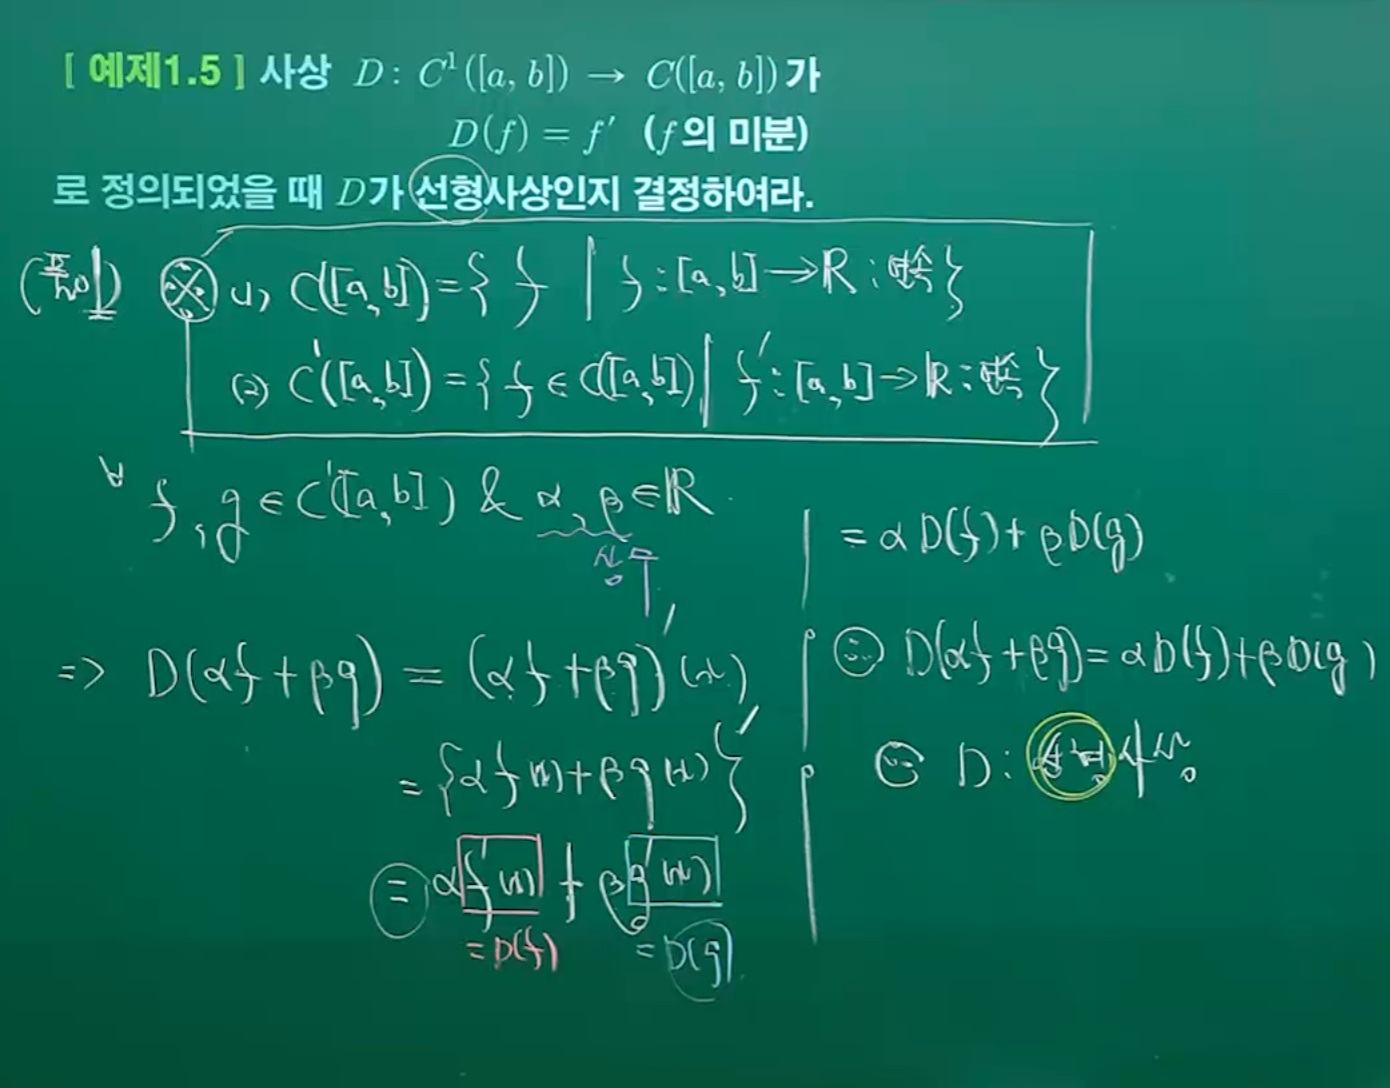 [ 예제1.5 ] 사상 D : C¹([a, b]) → C([a, b])가
D(f) = f′ (f의 미분)
로 정의되었을 때 D가 선형사상인지 결정하여라.
(풀이) ※ (1) C([a,b]) = { f | f : [a,b] → ℝ : 연속 }
(2) C¹([a,b]) = { f ∈ C([a,b]) | f′ : [a,b] → ℝ : 연속 }
∀ f, g ∈ C¹([a,b]) & α, β ∈ ℝ.
상수
⇒ D(αf + βg) = (αf + βg)′(x)
= {αf(x) + βg(x)}′
= αf′(x) + βg′(x)
= D(f) = D(g)
= αD(f) + βD(g)
∴ D(αf + βg) = αD(f) + βD(g)
∴ D : 선형사상